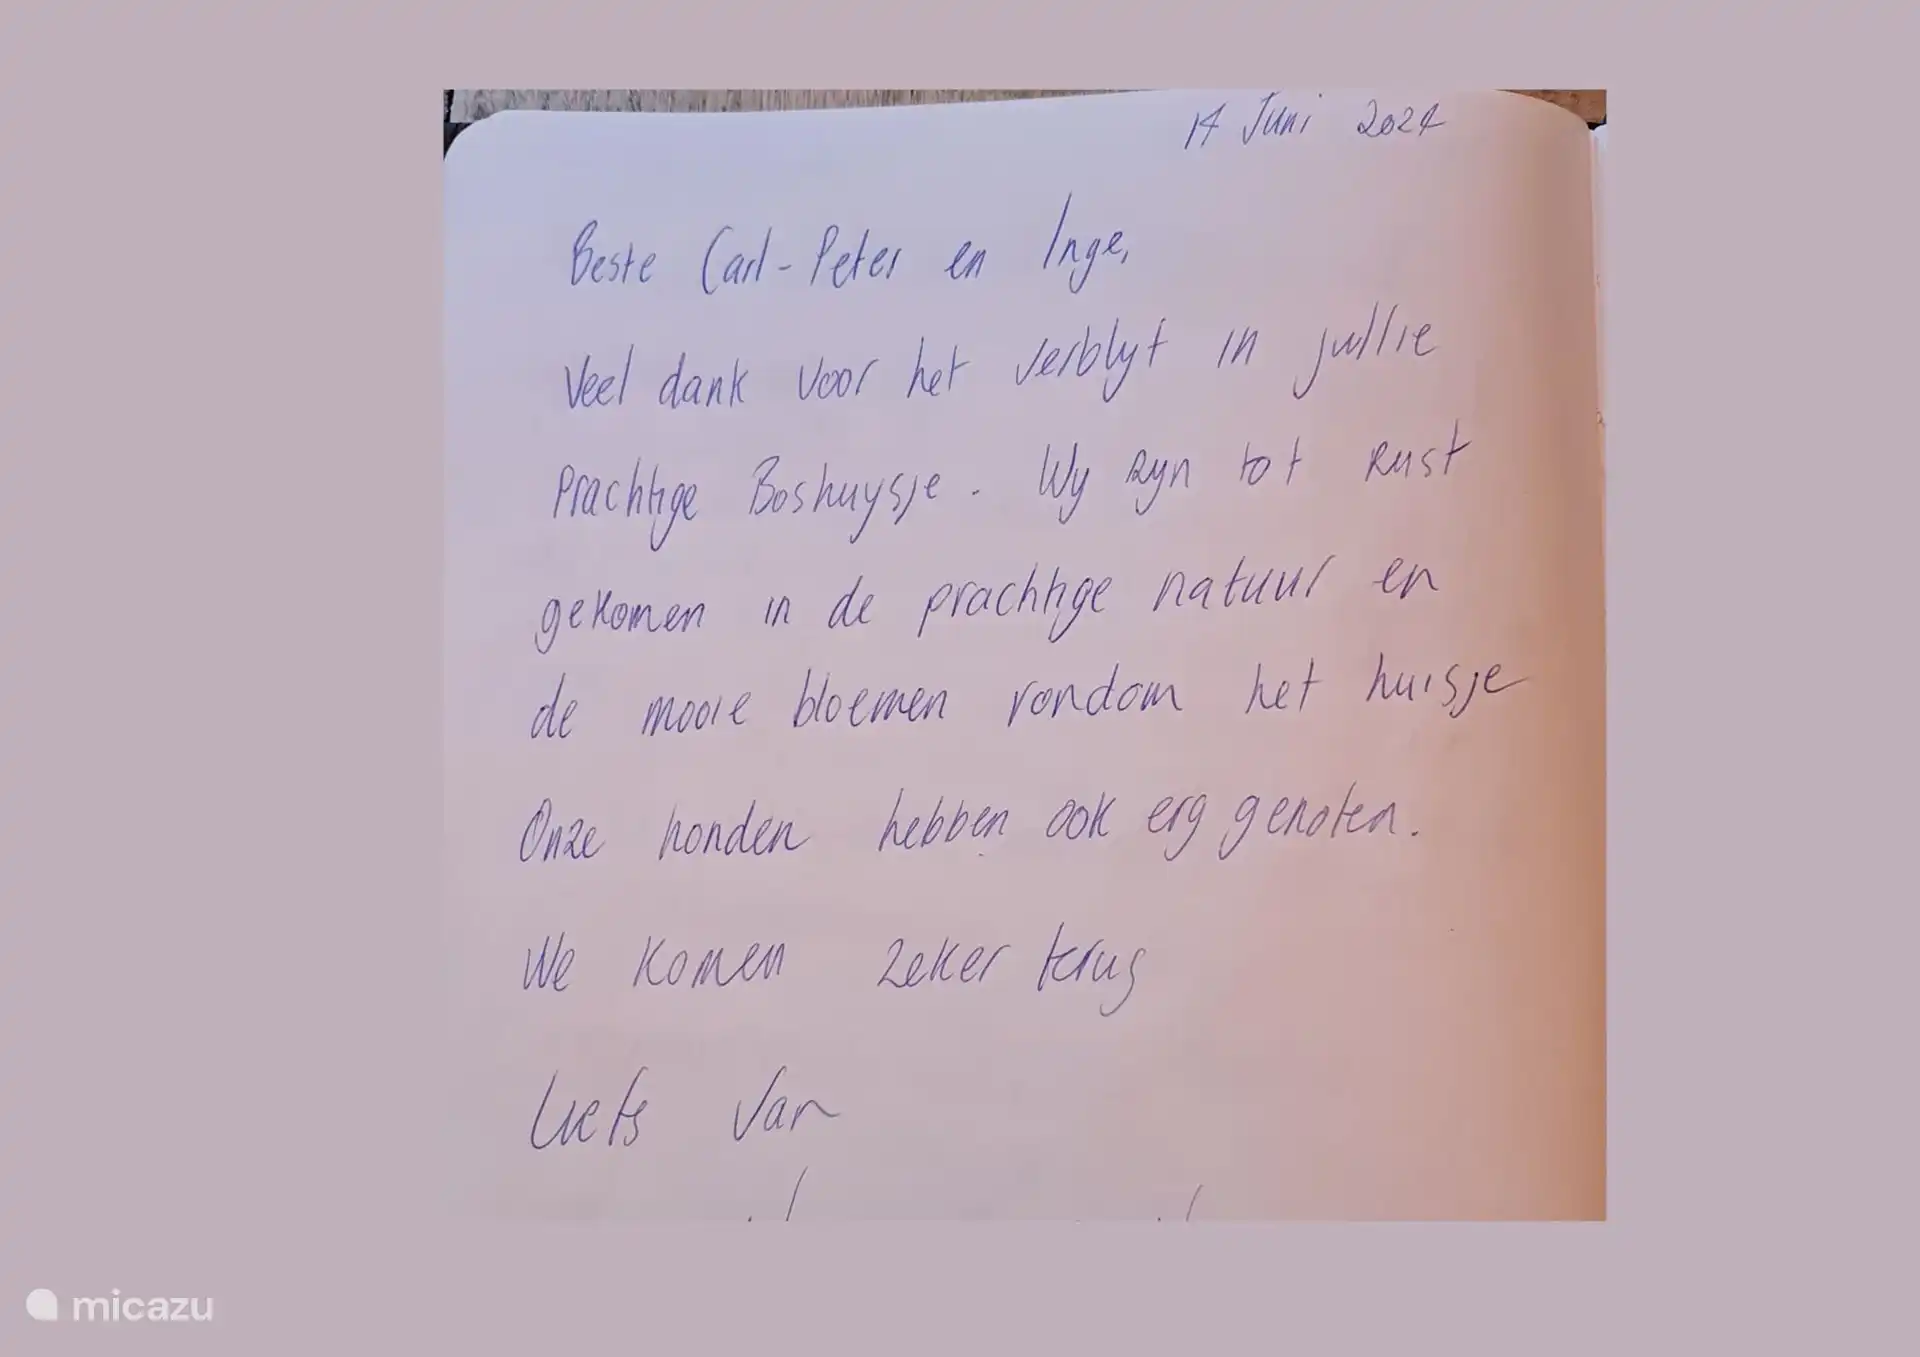 14 Juni 2024
Beste Carl-Peter en Inge,
Veel dank voor het verblyt in jullie
Prachtige Boshuysje. Wy zyn tot Rust
gekomen in de prachtige natuur en
de mooie bloemen rondom het huisje
Onze honden hebben ook erg genoten.
We komen zeker terug
Liefs van
micazu